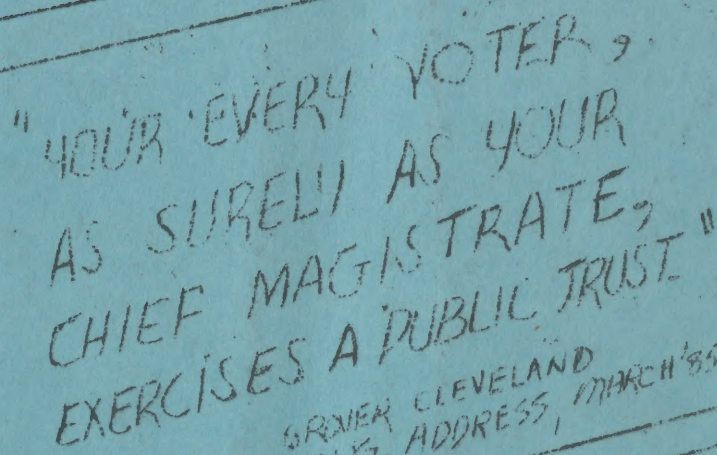 "YOUR EVERY VOTER,
AS SURELY AS YOUR
CHIEF MAGISTRATE,
EXERCISES A PUBLIC TRUST"
GROVER CLEVELAND
ADDRESS, MARCH '85